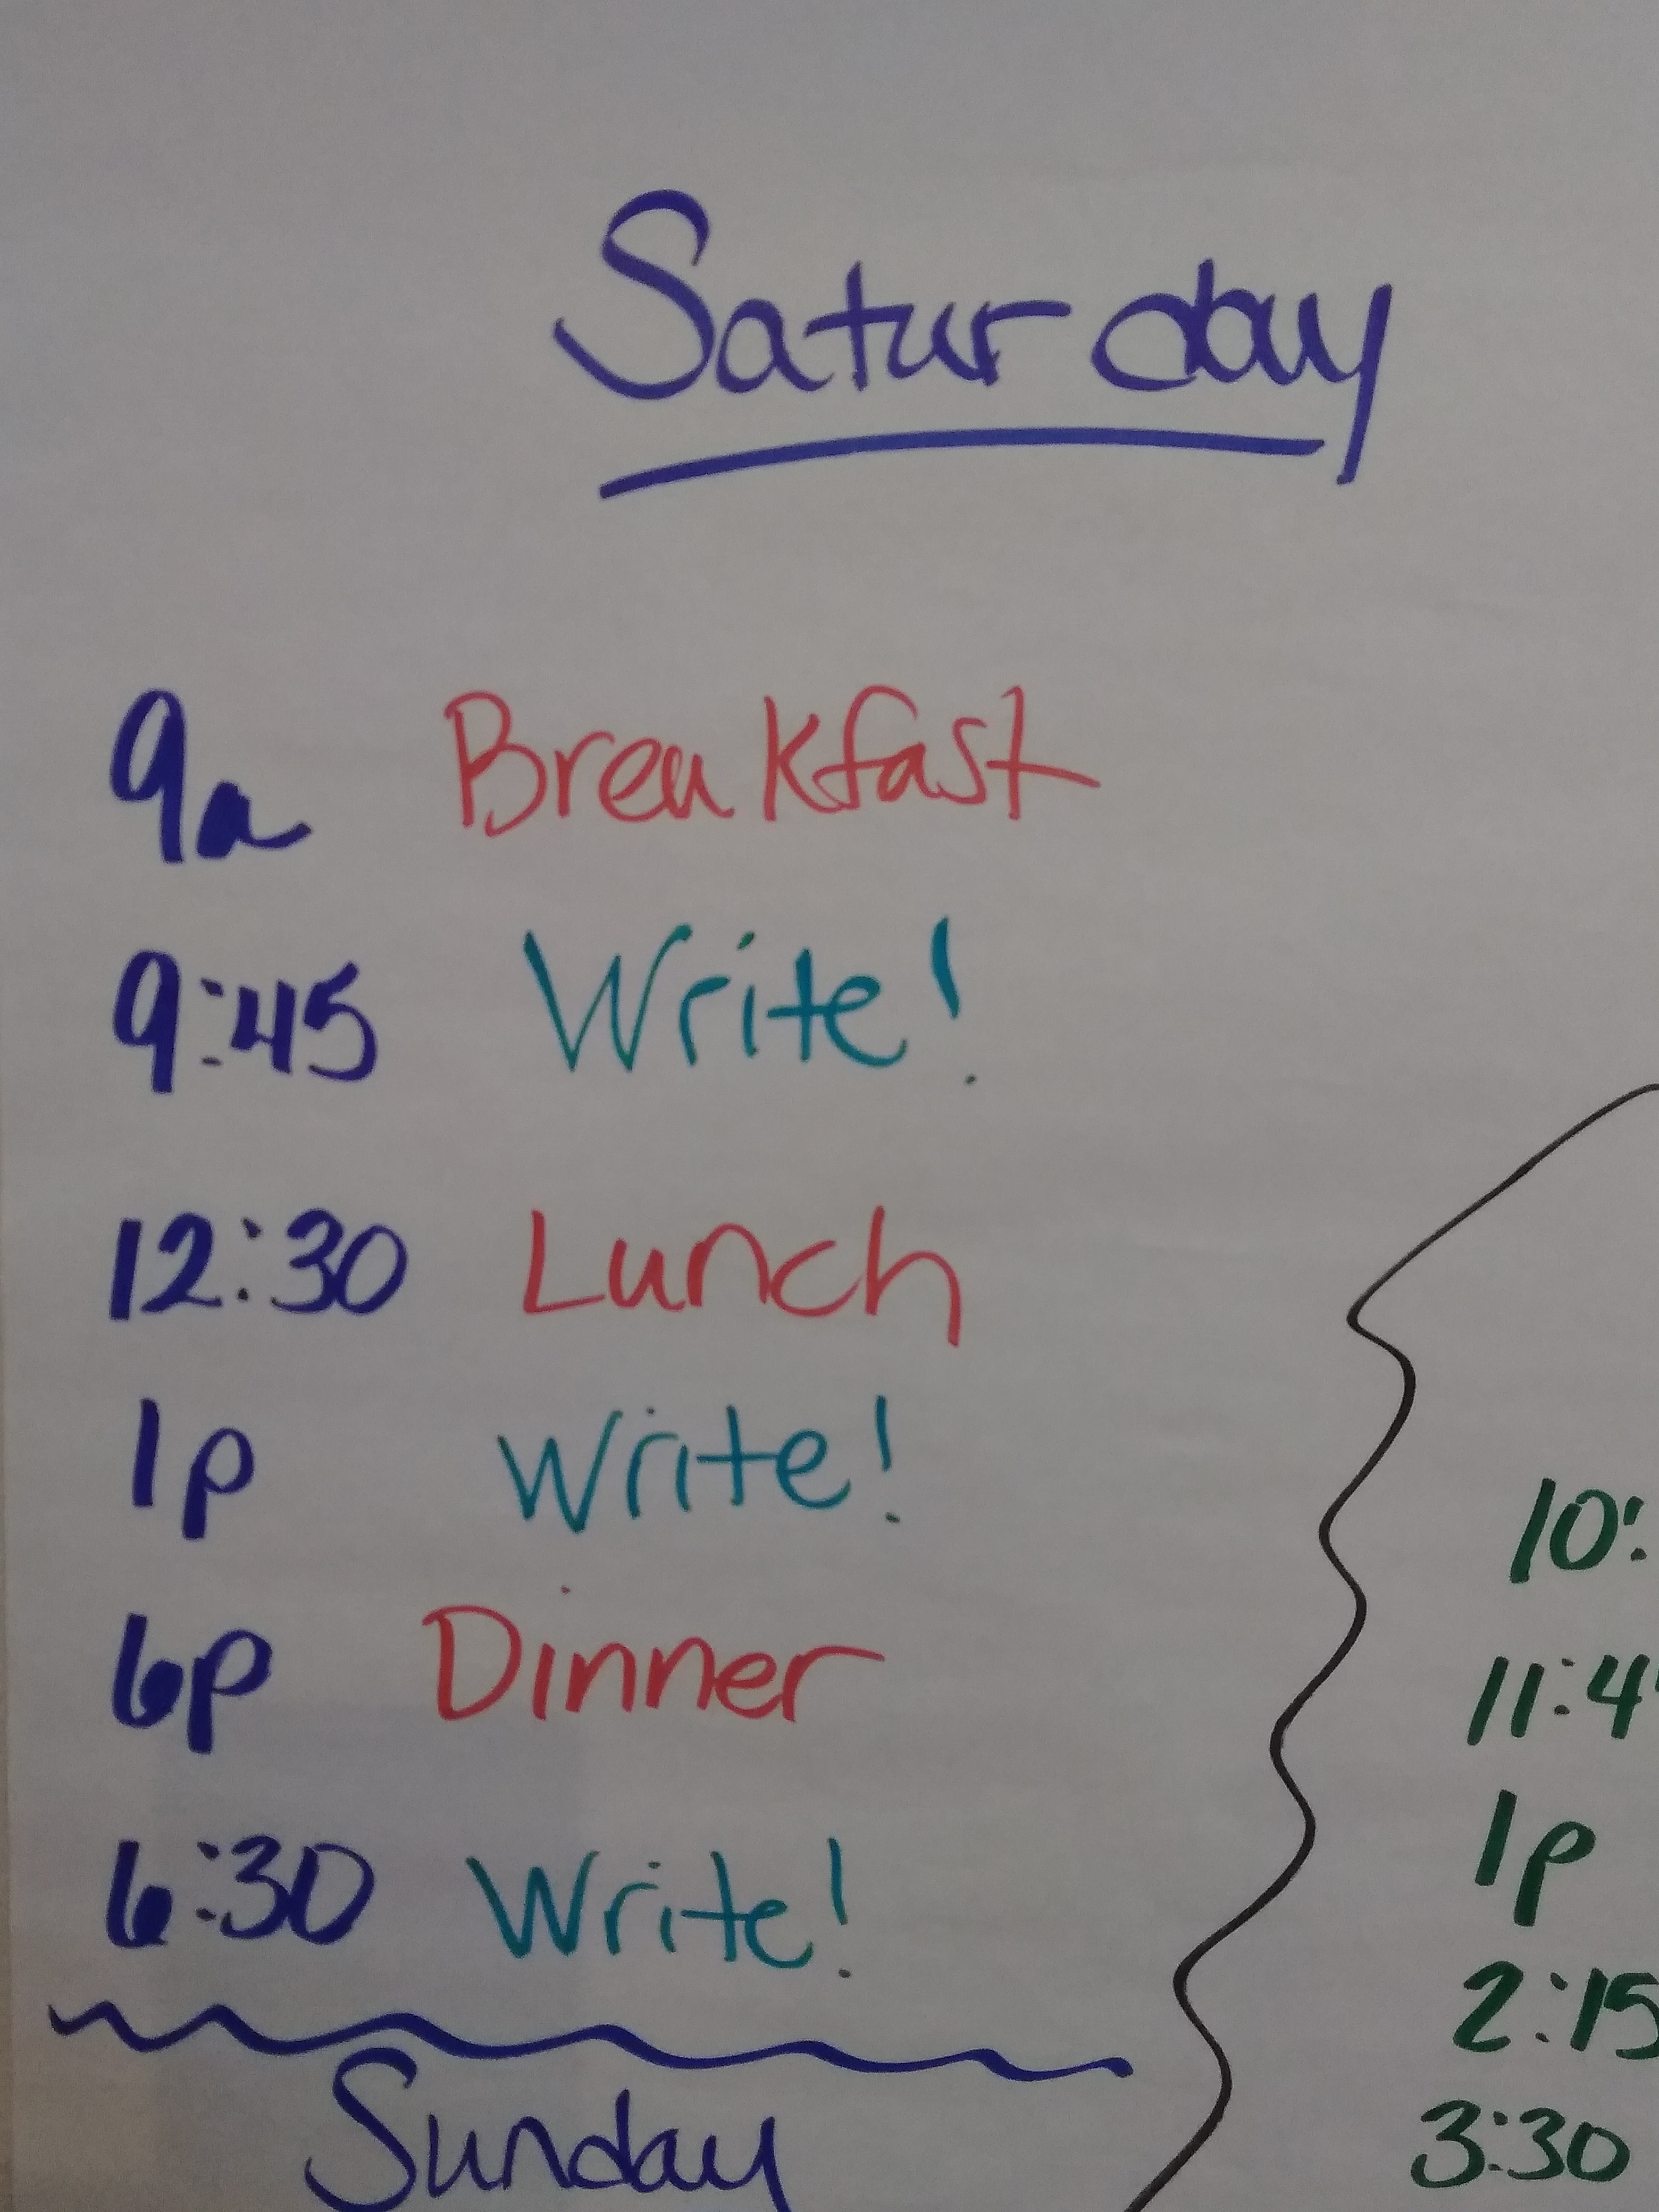 Saturday
9a Breakfast
9:45 Write!
12:30 Lunch
1p Write!
6p Dinner
6:30 Write!
Sunday
10:
11:4
1p
2:15
3:30